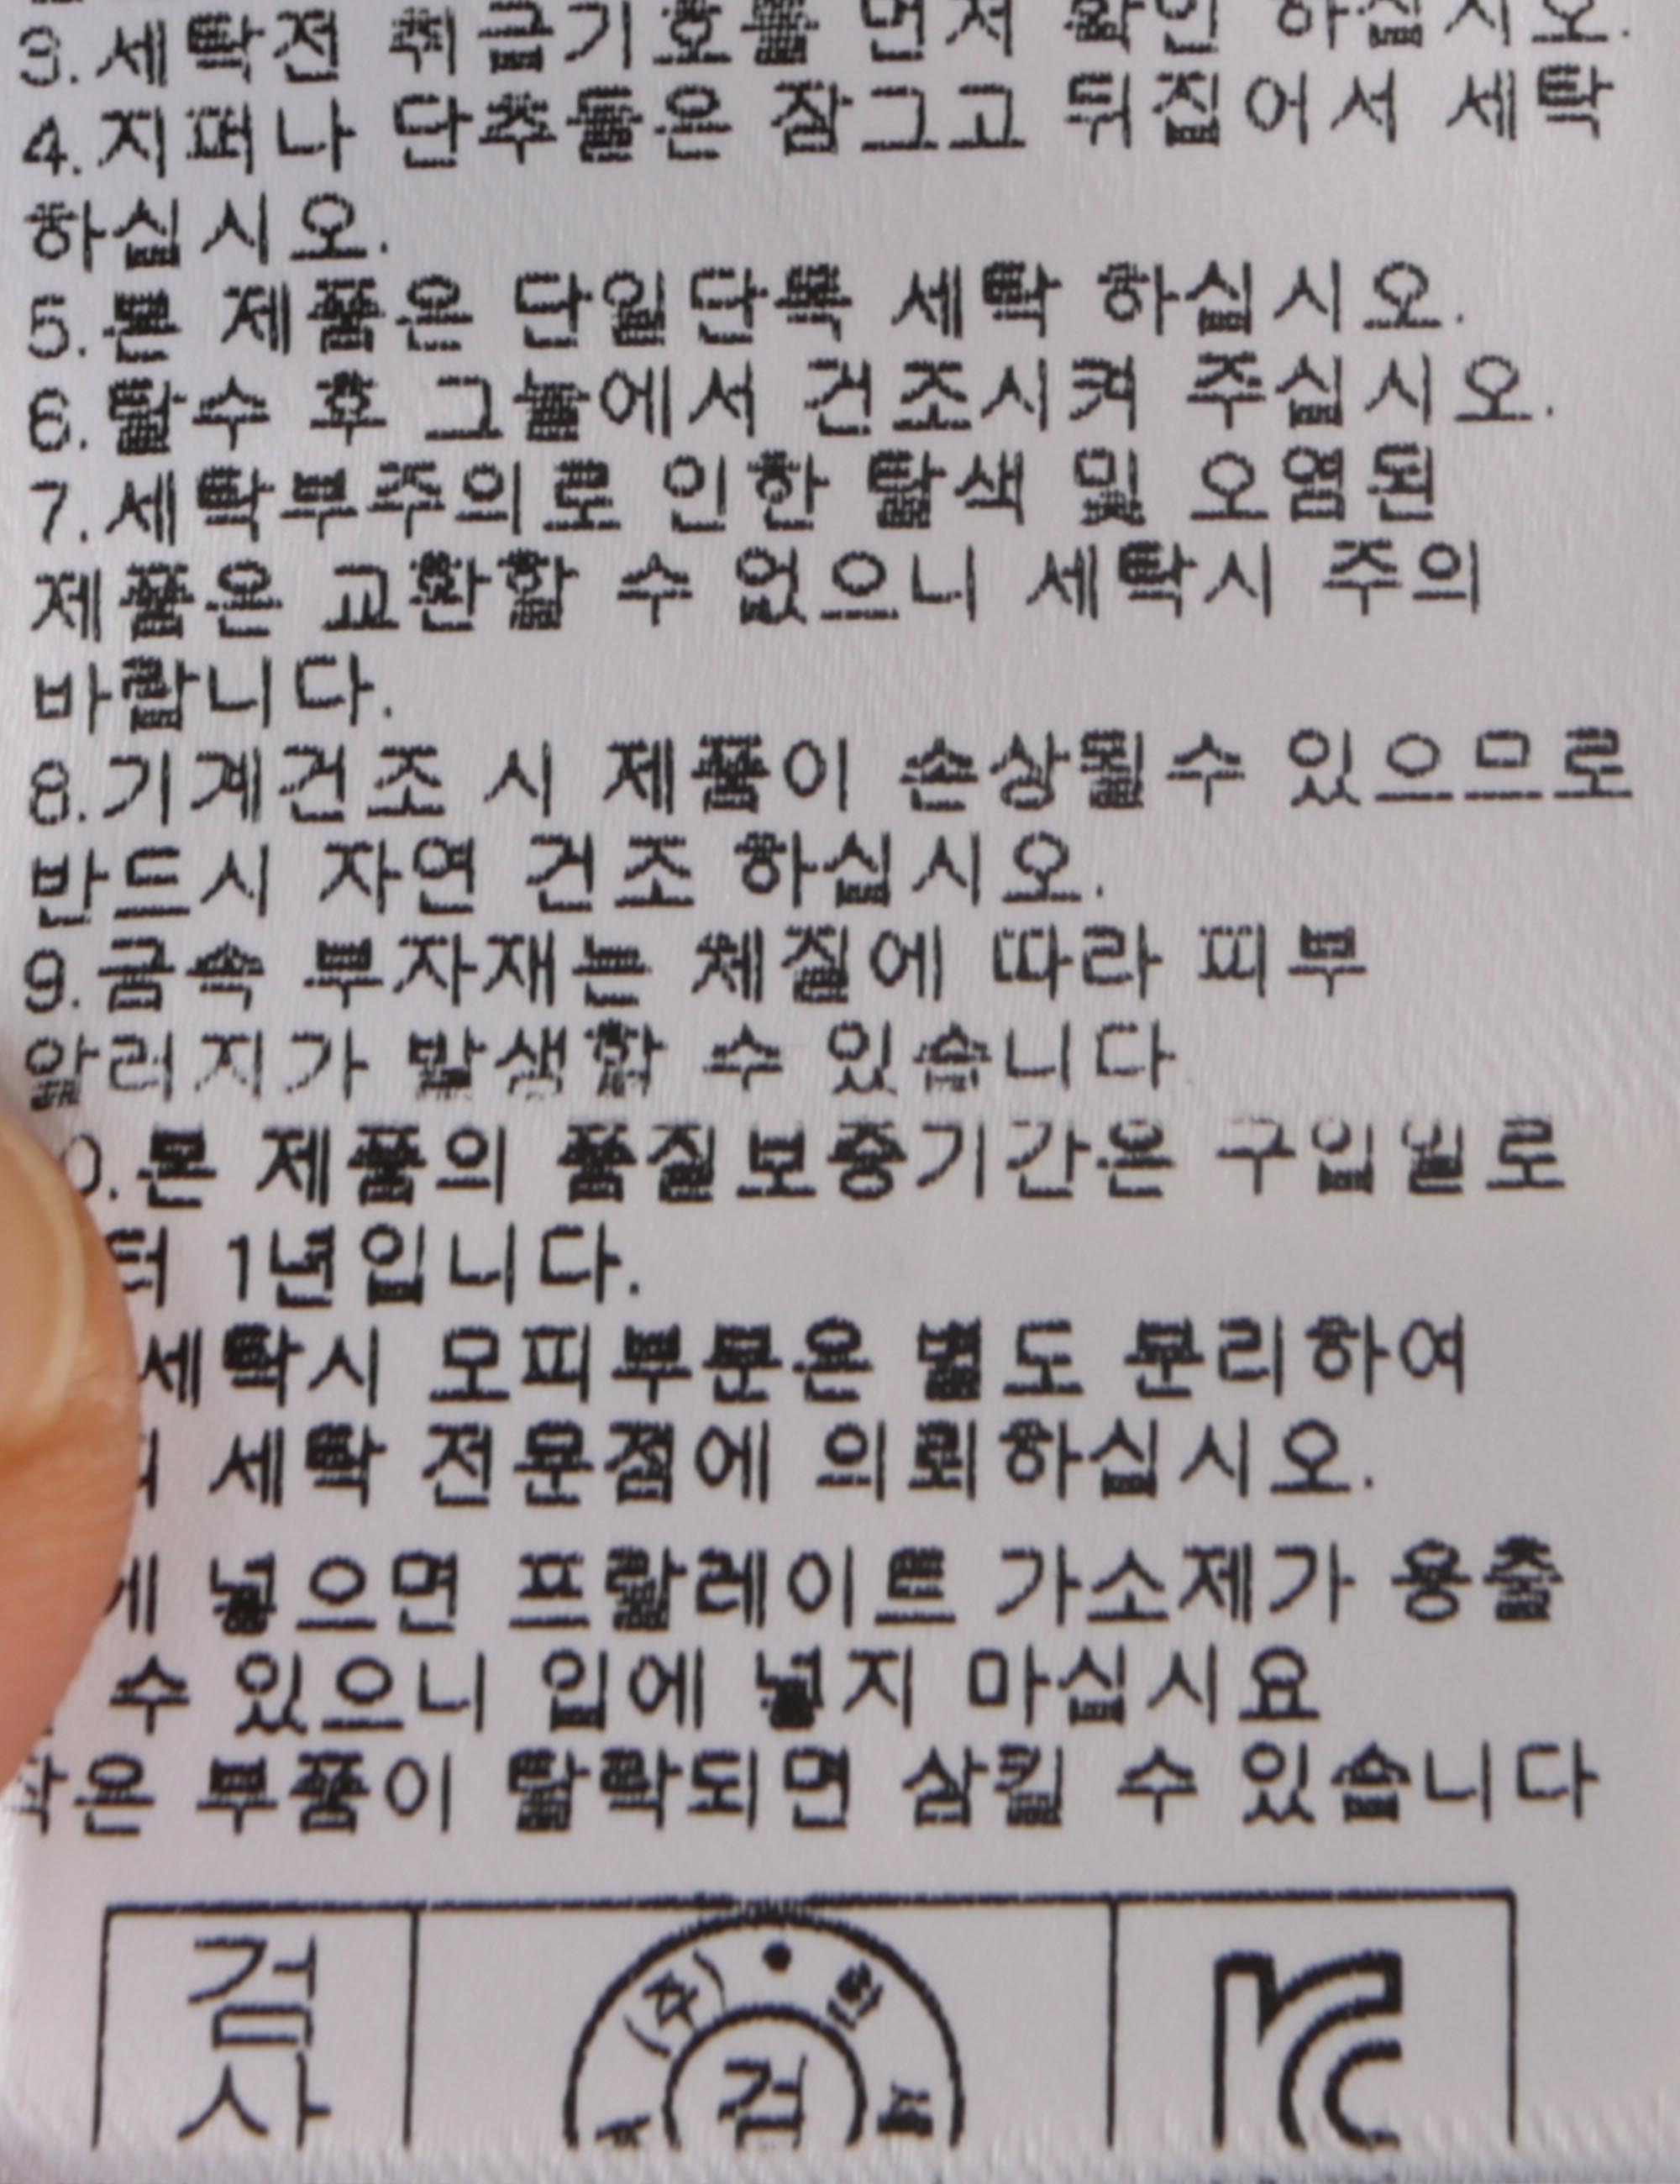 3.세탁전 취급기호를 먼저 확인 하십시오.
4.지퍼나 단추들은 잠그고 뒤집어서 세탁
하십시오.
5.본 제품은 단일단독 세탁 하십시오.
6.탈수 후 그늘에서 건조시켜 주십시오.
7.세탁부주의로 인한 탈색 및 오염된
제품은 교환할 수 없으니 세탁시 주의
바랍니다.
8.기계건조 시 제품이 손상될수 있으므로
반드시 자연 건조 하십시오.
9.금속 부자재는 체질에 따라 피부
알러지가 발생할 수 있습니다
0.본 제품의 품질보증기간은 구입일로
터 1년입니다.
세탁시 모피부분은 별도 분리하여
세탁 전문점에 의뢰하십시오.
에 넣으면 프탈레이트 가소제가 용출
수 있으니 입에 넣지 마십시요
작은 부품이 탈락되면 삼킬 수 있습니다
검사
(주)
검